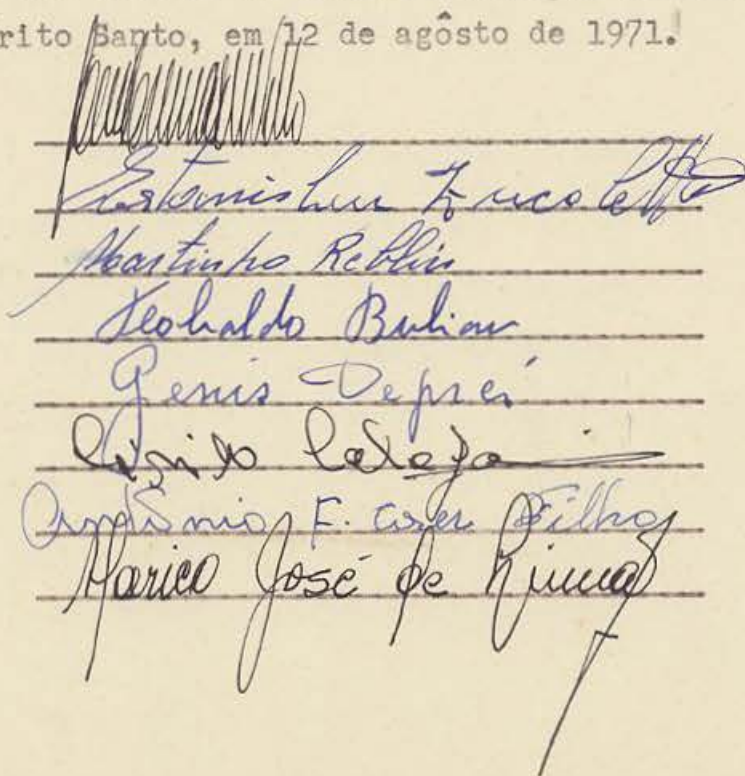 rito Santo, em 12 de agôsto de 1971.
Estanislau Zucolotto
Martinho Reblin
Teobaldo Bulian
Genis Deprei
Cirilo
Antônio F. Coser Filho
José de Lima